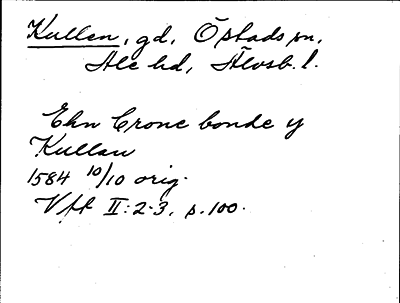 Kullen, gd, Östads sn,
Ale hd, Älvsb. l.
Ehn Crone bonde y
Kullan
1584 10/10 orig.
Vfk II:2-3, p. 100.